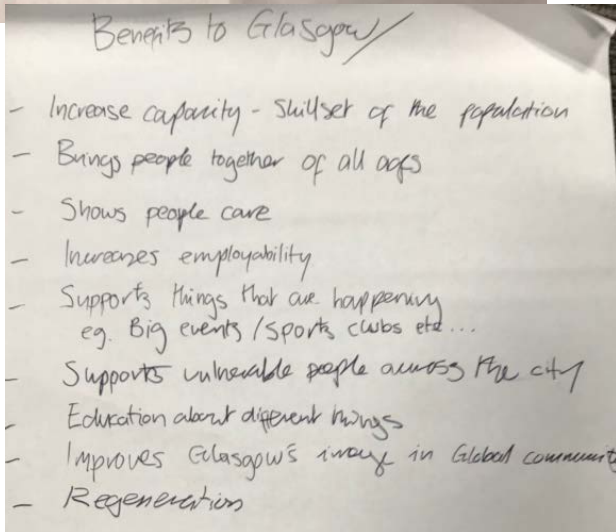 Benefits to Glasgow
- Increase capacity - Skillset of the population
- Brings people together of all ages
- Shows people care
- Increases employability
- Supports things that are happening
eg. Big events / sports clubs etc...
- Supports vulnerable people across the city
- Education about different things
- Improves Glasgow's image in Global community
- Regeneration